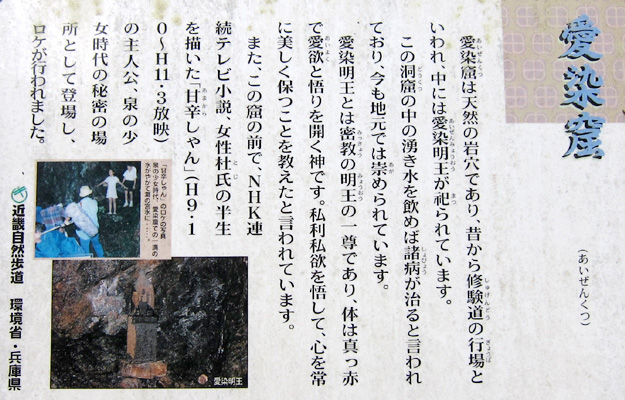 愛染窟
(あいぜんくつ)
愛染窟は天然の岩穴であり、昔から修験道の行場と
いわれ、中には愛染明王が祀られています。
この洞窟の中の湧き水を飲めば諸病が治ると言われ
ており、今も地元では崇められています。
愛染明王とは密教の明王の一尊であり、体は真っ赤
で愛欲と悟りを開く神です。私利私欲を悟して、心を常
に美しく保つことを教えたと言われています。
また、この窟の前で、NHK連
続テレビ小説、女性杜氏の半生
を描いた「甘辛しゃん」(H9・1
0〜H11・3放映)
の主人公、泉の少
女時代の秘密の場
所として登場し、
ロケが行われました。
「甘辛しゃん」のロケの写真
愛染明王
近畿自然歩道 環境省・兵庫県